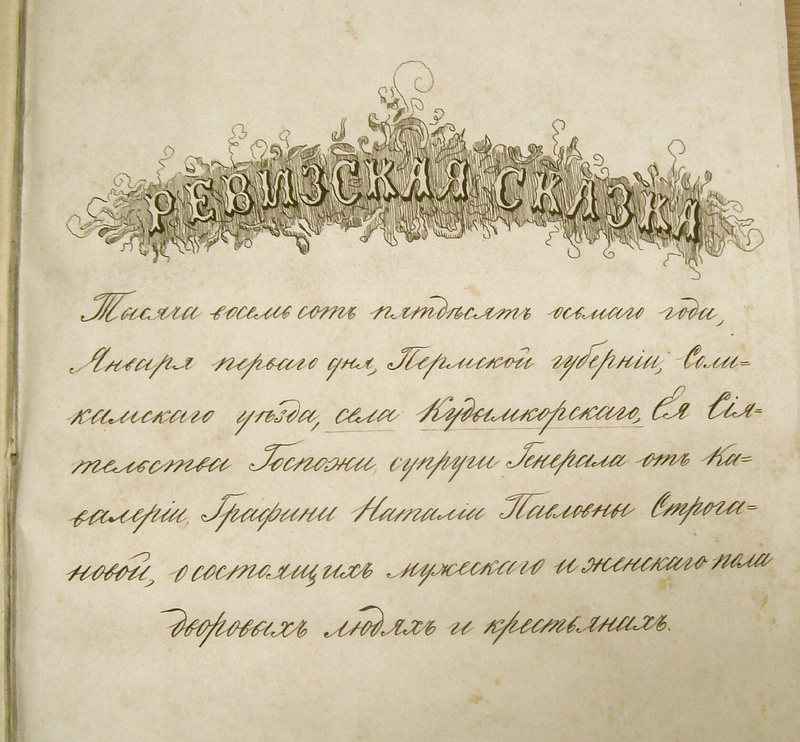 РЕВИЗСКАЯ СКАЗКА
Тысяча восемьсотъ пятдѣсятъ осьмаго года,
Января перваго дня, Пермской губерніи, Соли=
камскаго уѣзда, села Кудымкорскаго, Ея Сія=
тельства Госпожи супруги Генерала отъ Ка=
валеріи, Графини Наталіи Павловны Строга=
новой, о состоящихъ мужескаго и женскаго пола
дворовыхъ людяхъ и крестьянахъ.